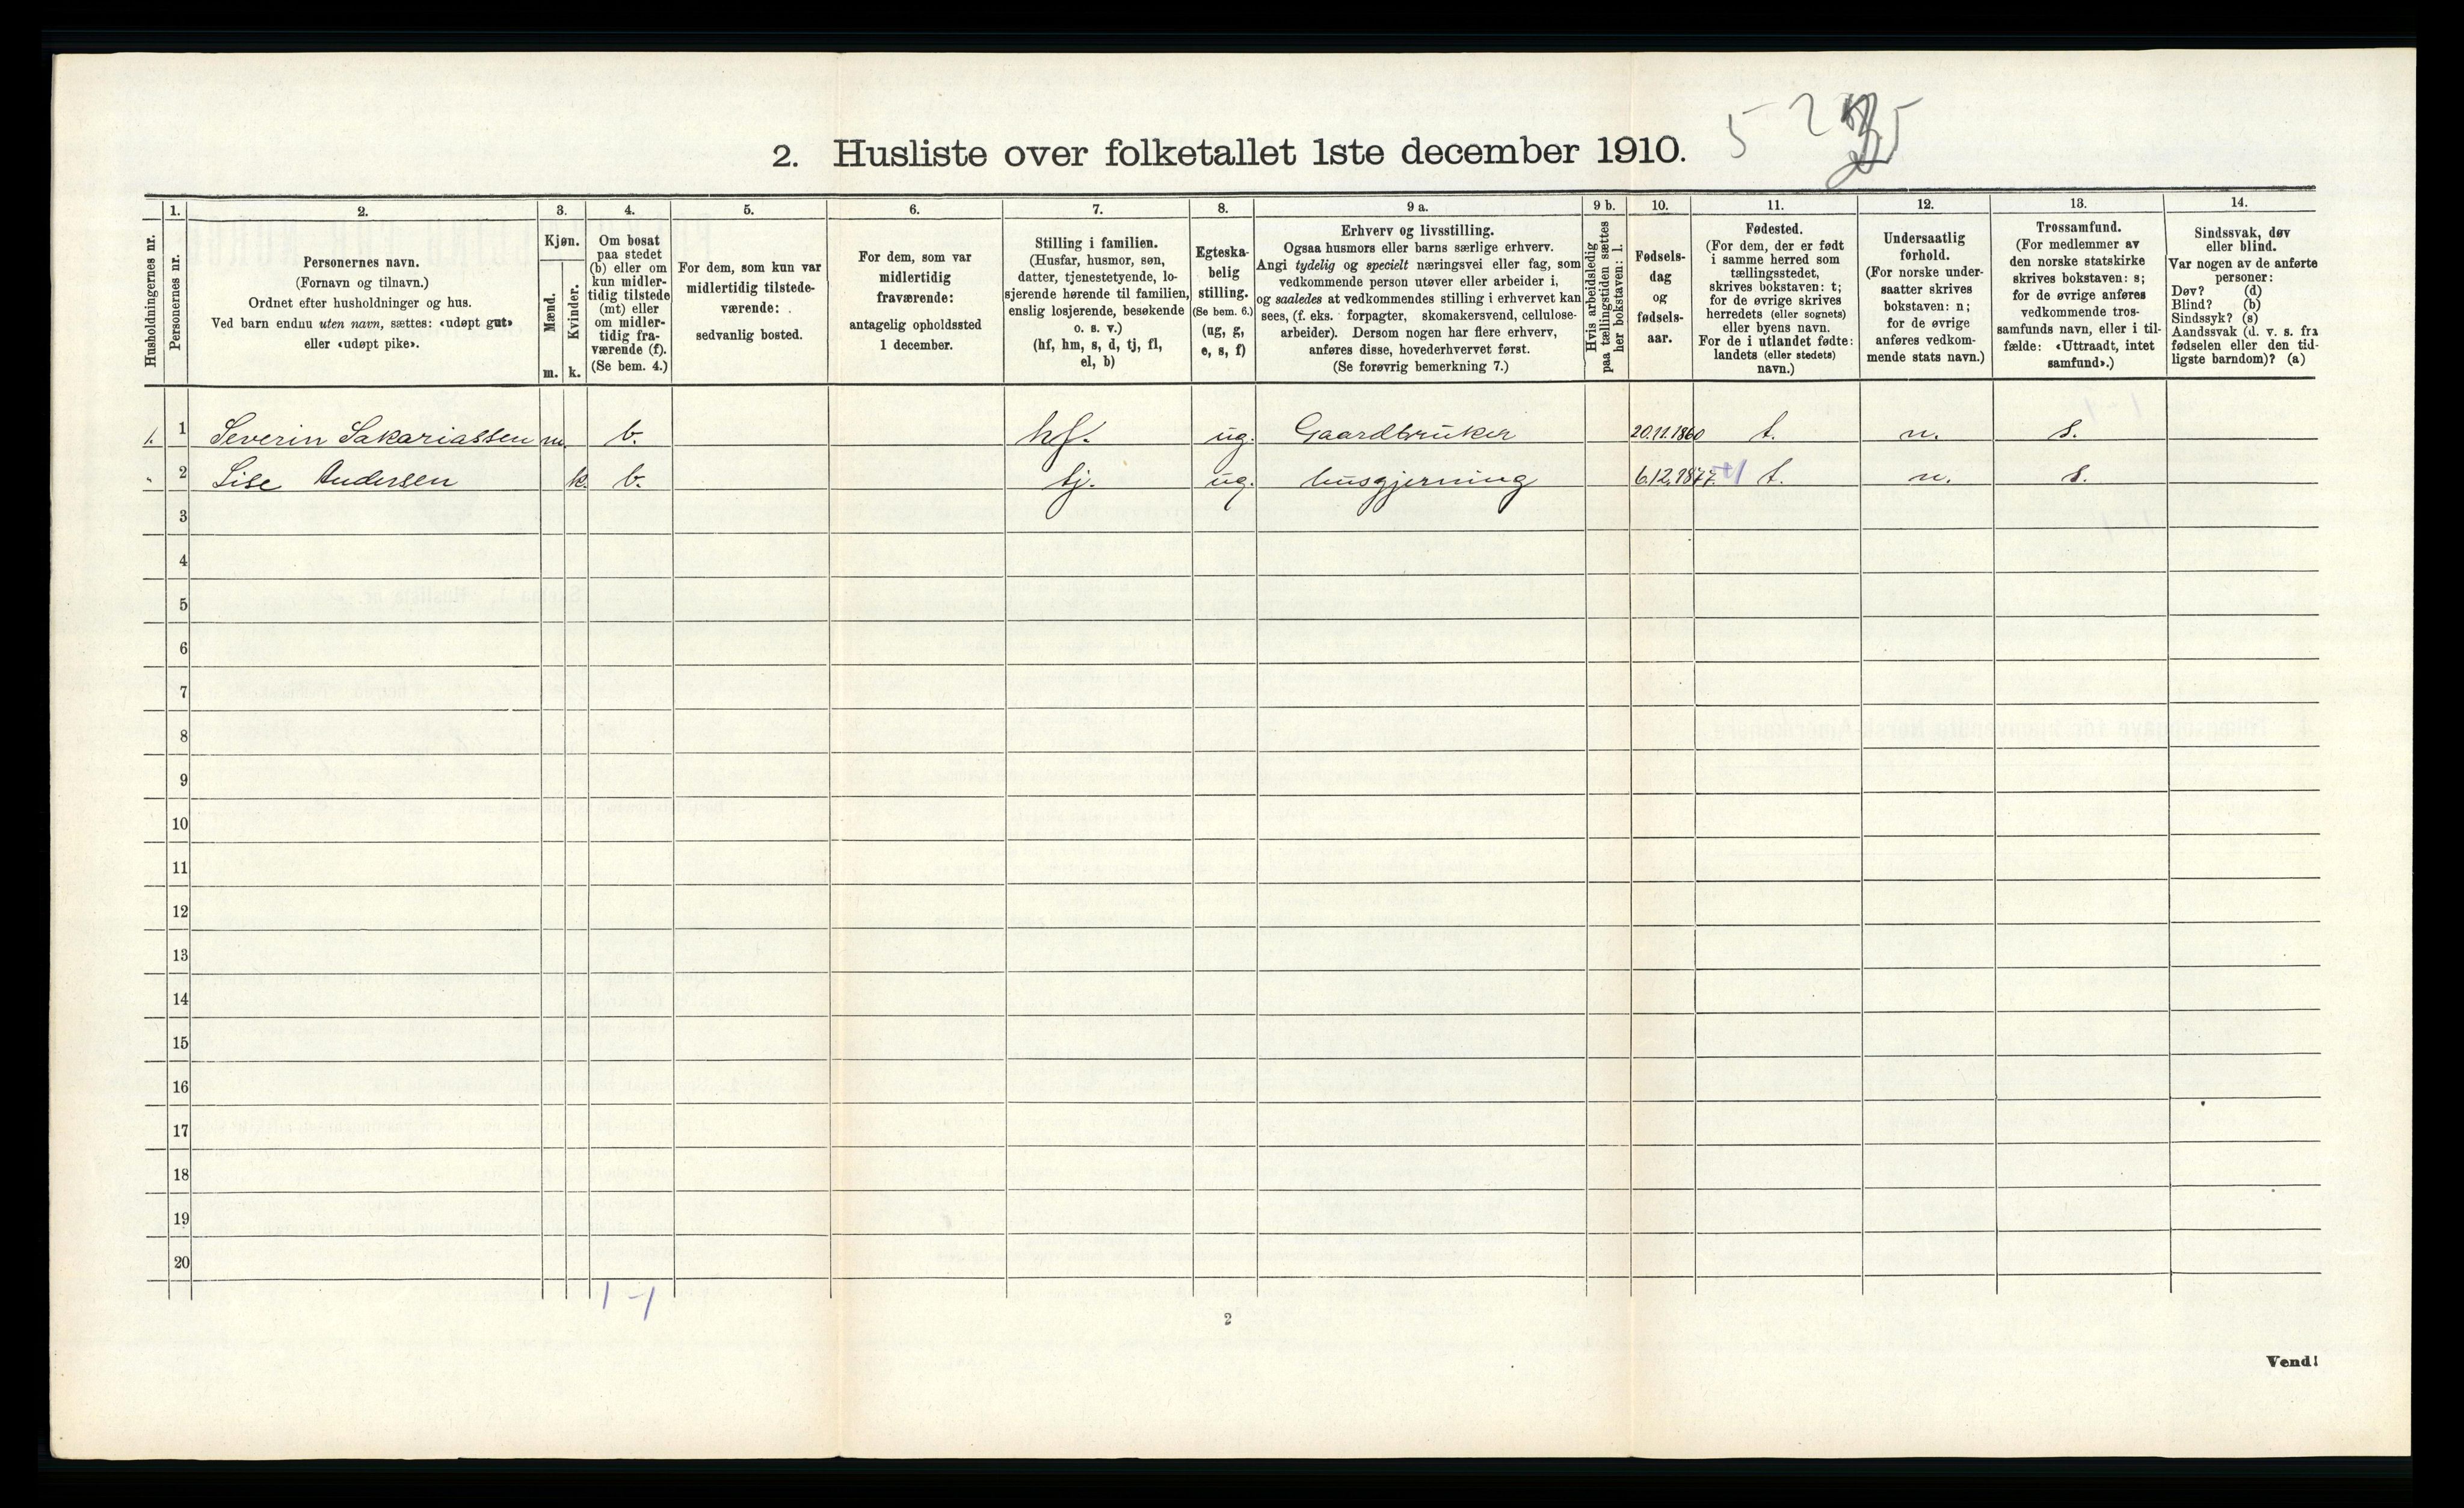 2. Husliste over folketallet 1ste december 1910.
Husholdningernes nr.
1.
Personernes nr.
2.
Personernes navn.
(Fornavn og tilnavn.)
Ordnet efter husholdninger og hus.
Ved barn endnu uten navn, sættes: «udøpt gut»
eller «udøpt pike».
3.
Kjøn.
Mænd.
Kvinder.
m. k.
4.
Om bosat
paa stedet
(b) eller om
kun midler-
tidig tilstede
(mt) eller
om midler-
tidig fra-
værende (f).
(Se bem. 4.)
5.
For dem, som kun var
midlertidig tilstede-
værende:
sedvanlig bosted.
6.
For dem, som var
midlertidig
fraværende:
antagelig opholdssted
1 december.
7.
Stilling i familien.
(Husfar, husmor, søn,
datter, tjenestetyende, lo-
sjerende hørende til familien,
enslig losjerende, besøkende
o. s. v.)
(hf, hm, s, d, tj, fl,
el, b)
8.
Egteska-
belig
stilling.
(Se bem. 6.)
(ug, g,
e, s, f)
9 a.
Erhverv og livsstilling.
Ogsaa husmors eller barns særlige erhverv.
Angi tydelig og specielt næringsvei eller fag, som
vedkommende person utøver eller arbeider i,
og saaledes at vedkommendes stilling i erhvervet kan
sees, (f. eks. forpagter, skomakersvend, cellulose-
arbeider). Dersom nogen har flere erhverv,
anføres disse, hovederhvervet først.
(Se forøvrig bemerkning 7.)
9 b.
Hvis arbeidsledig
paa tællingstiden sættes
her bokstaven: l.
10.
Fødsels-
dag
og
fødsels-
aar.
11.
Fødested.
(For dem, der er født
i samme herred som
tællingsstedet,
skrives bokstaven: t;
for de øvrige skrives
herredets (eller sognets)
eller byens navn.
For de i utlandet fødte:
landets (eller stedets)
navn.)
12.
Undersaatlig
forhold.
(For norske under-
saatter skrives
bokstaven: n;
for de øvrige
anføres vedkom-
mende stats navn.)
13.
Trossamfund.
(For medlemmer av
den norske statskirke
skrives bokstaven: s;
for de øvrige anføres
vedkommende tros-
samfunds navn, eller i til-
fælde: «Uttraadt, intet
samfund».)
14.
Sindssvak, døv
eller blind.
Var nogen av de anførte
personer:
Døv? (d)
Blind? (b)
Sindssyk? (s)
Aandssvak (d. v. s. fra
fødselen eller den tid-
ligste barndom)? (a)
1. 1 Severin Sakariassen m. b. hf. ug. Gaardbruker 20.11.1860 t. n. s.
" 2 Lise Andersen k. b. tj. ug. husgjerning 6.12.1877. t. n. s.
3
4
5
6
7
8
9
10
11
12
13
14
15
16
17
18
19
20
1 - 1
2
Vend!